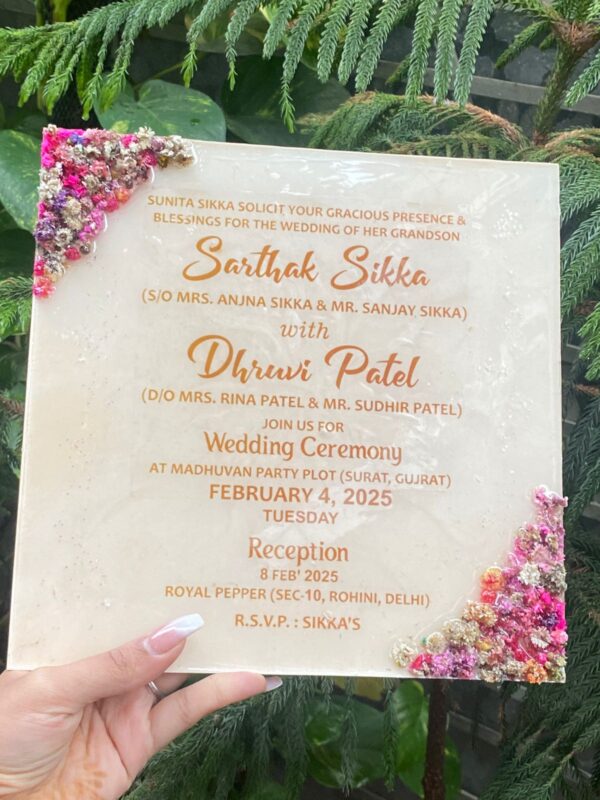 SUNITA SIKKA SOLICIT YOUR GRACIOUS PRESENCE &
BLESSINGS FOR THE WEDDING OF HER GRANDSON
Sarthak Sikka
(S/O MRS. ANJNA SIKKA & MR. SANJAY SIKKA)
with
Dhruvi Patel
(D/O MRS. RINA PATEL & MR. SUDHIR PATEL)
JOIN US FOR
Wedding Ceremony
AT MADHUVAN PARTY PLOT (SURAT, GUJRAT)
FEBRUARY 4, 2025
TUESDAY
Reception
8 FEB' 2025
ROYAL PEPPER (SEC-10, ROHINI, DELHI)
R.S.V.P. : SIKKA'S